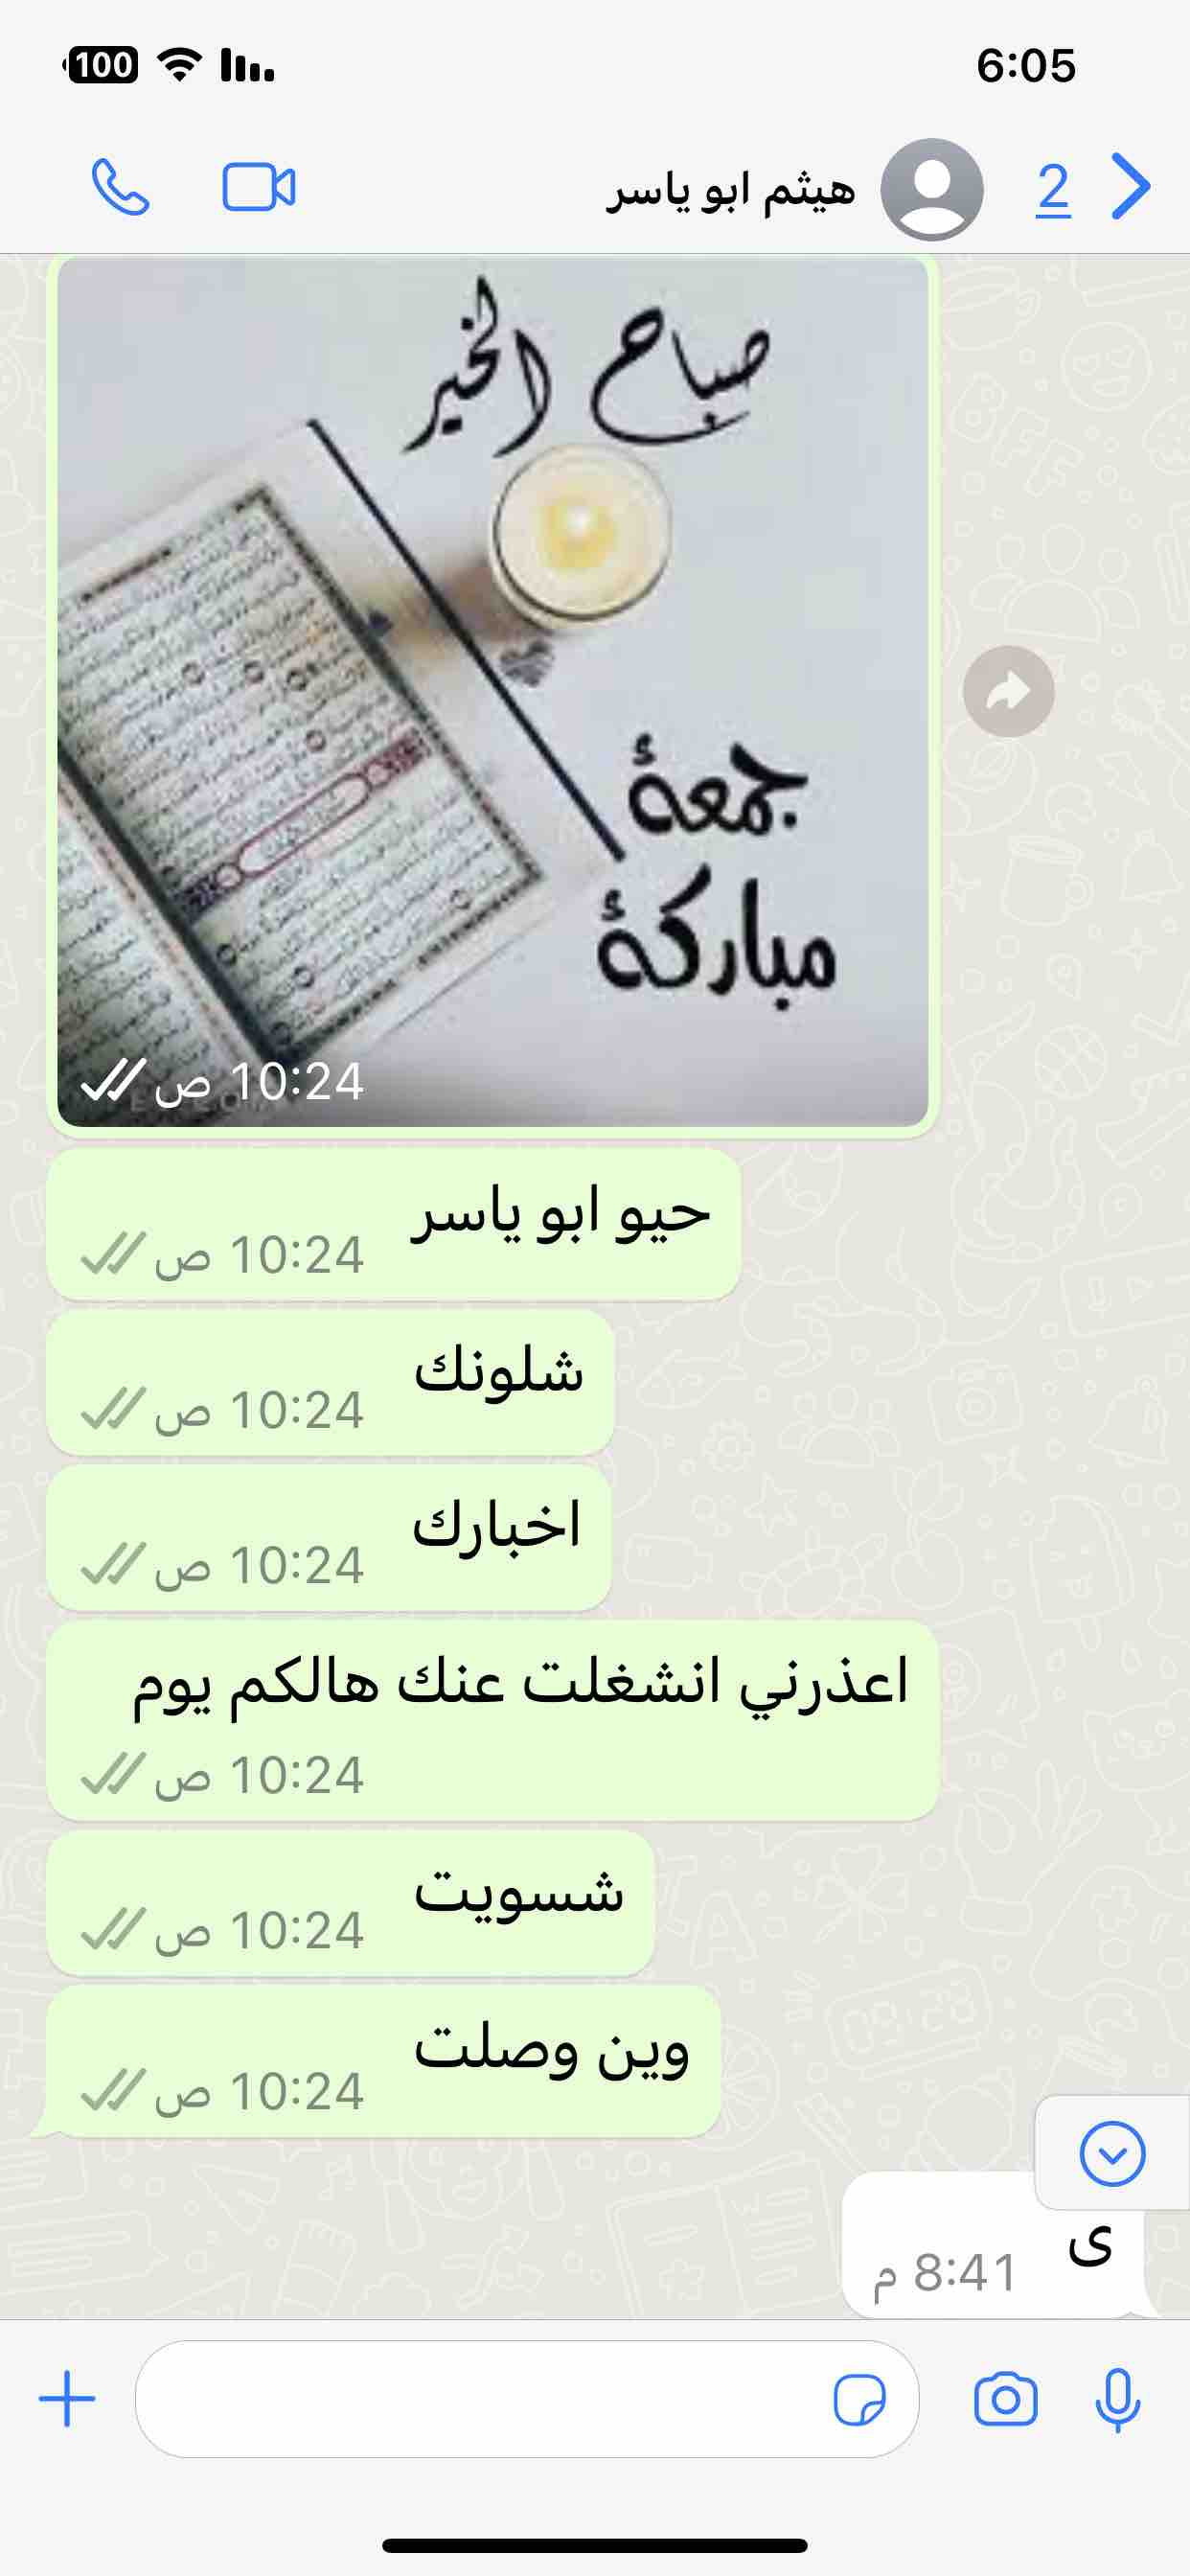 100
6:05
هيثم ابو ياسر
2
صباح الخير
جمعة
مباركة
10:24 ص
حيو ابو ياسر
10:24 ص
شلونك
10:24 ص
اخبارك
10:24 ص
اعذرني انشغلت عنك هالكم يوم
10:24 ص
شسويت
10:24 ص
وين وصلت
10:24 ص
ى
8:41 م